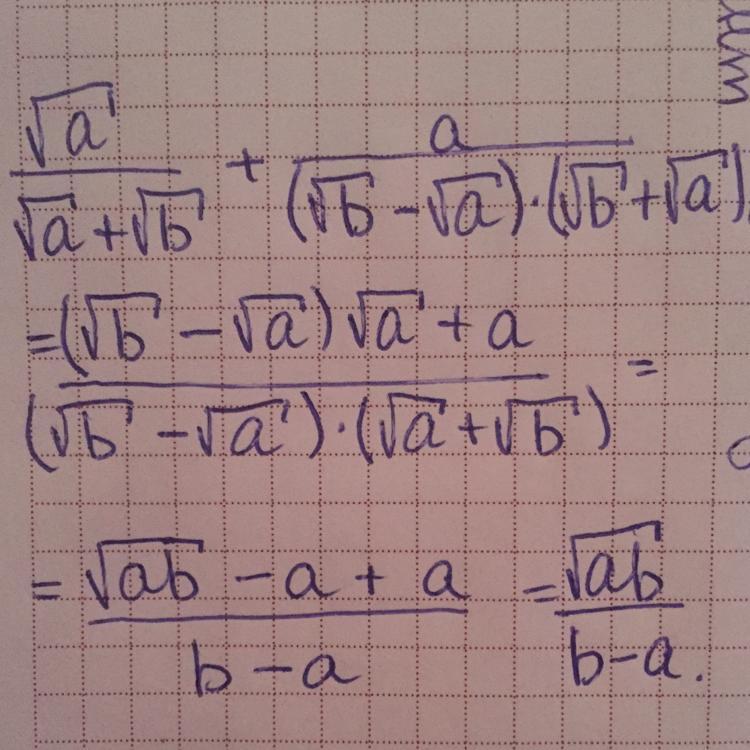 √a/(√a + √b) + a/((√b − √a)·(√b + √a))
= ((√b − √a)√a + a)/((√b − √a)·(√a + √b)) =
= (√ab − a + a)/(b − a) = √ab/(b − a).